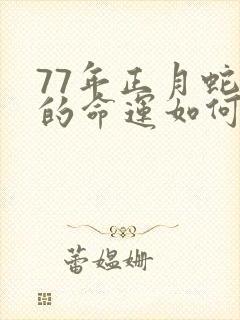 77年正月蛇
的命运如何
蕾媪姗